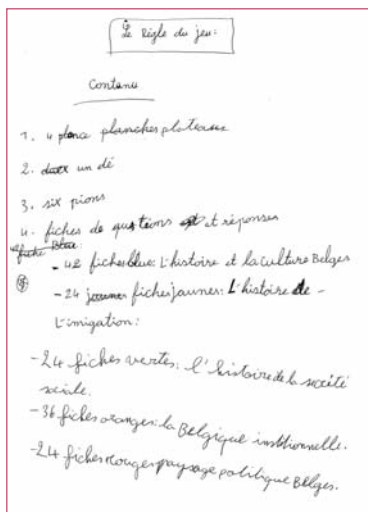 Le Règle du jeu:
Contenu
1. 4 planches plateaux
2. un dé
3. six pions
4. fiches de questions et réponses
fiche Blue:
- 42 fiches blue: L'histoire et la culture Belges
- 24 fiches jaunes: L'histoire de -
L'imigation:
- 24 fiches vertes: l'histoire de la société
sociale.
- 36 fiches oranges: la Belgique institionnelle.
- 24 fiches rouges paysage politique Belges.